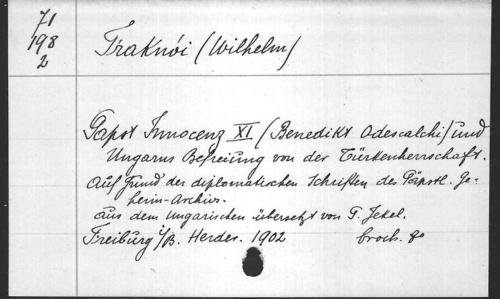 71
198
2
Fraknói (Wilhelm)
Papst Innocenz XI (Benedikt Odescalchi) und
Ungarns Befreiung von der Türkenherrschaft.
Auf Grund der diplomatischen Schriften des Päpstl. Ge-
heim-Archivs.
Aus dem Ungarischen übersetzt von P. Jekel.
Freiburg i/B. Herder. 1902 broch. 8°